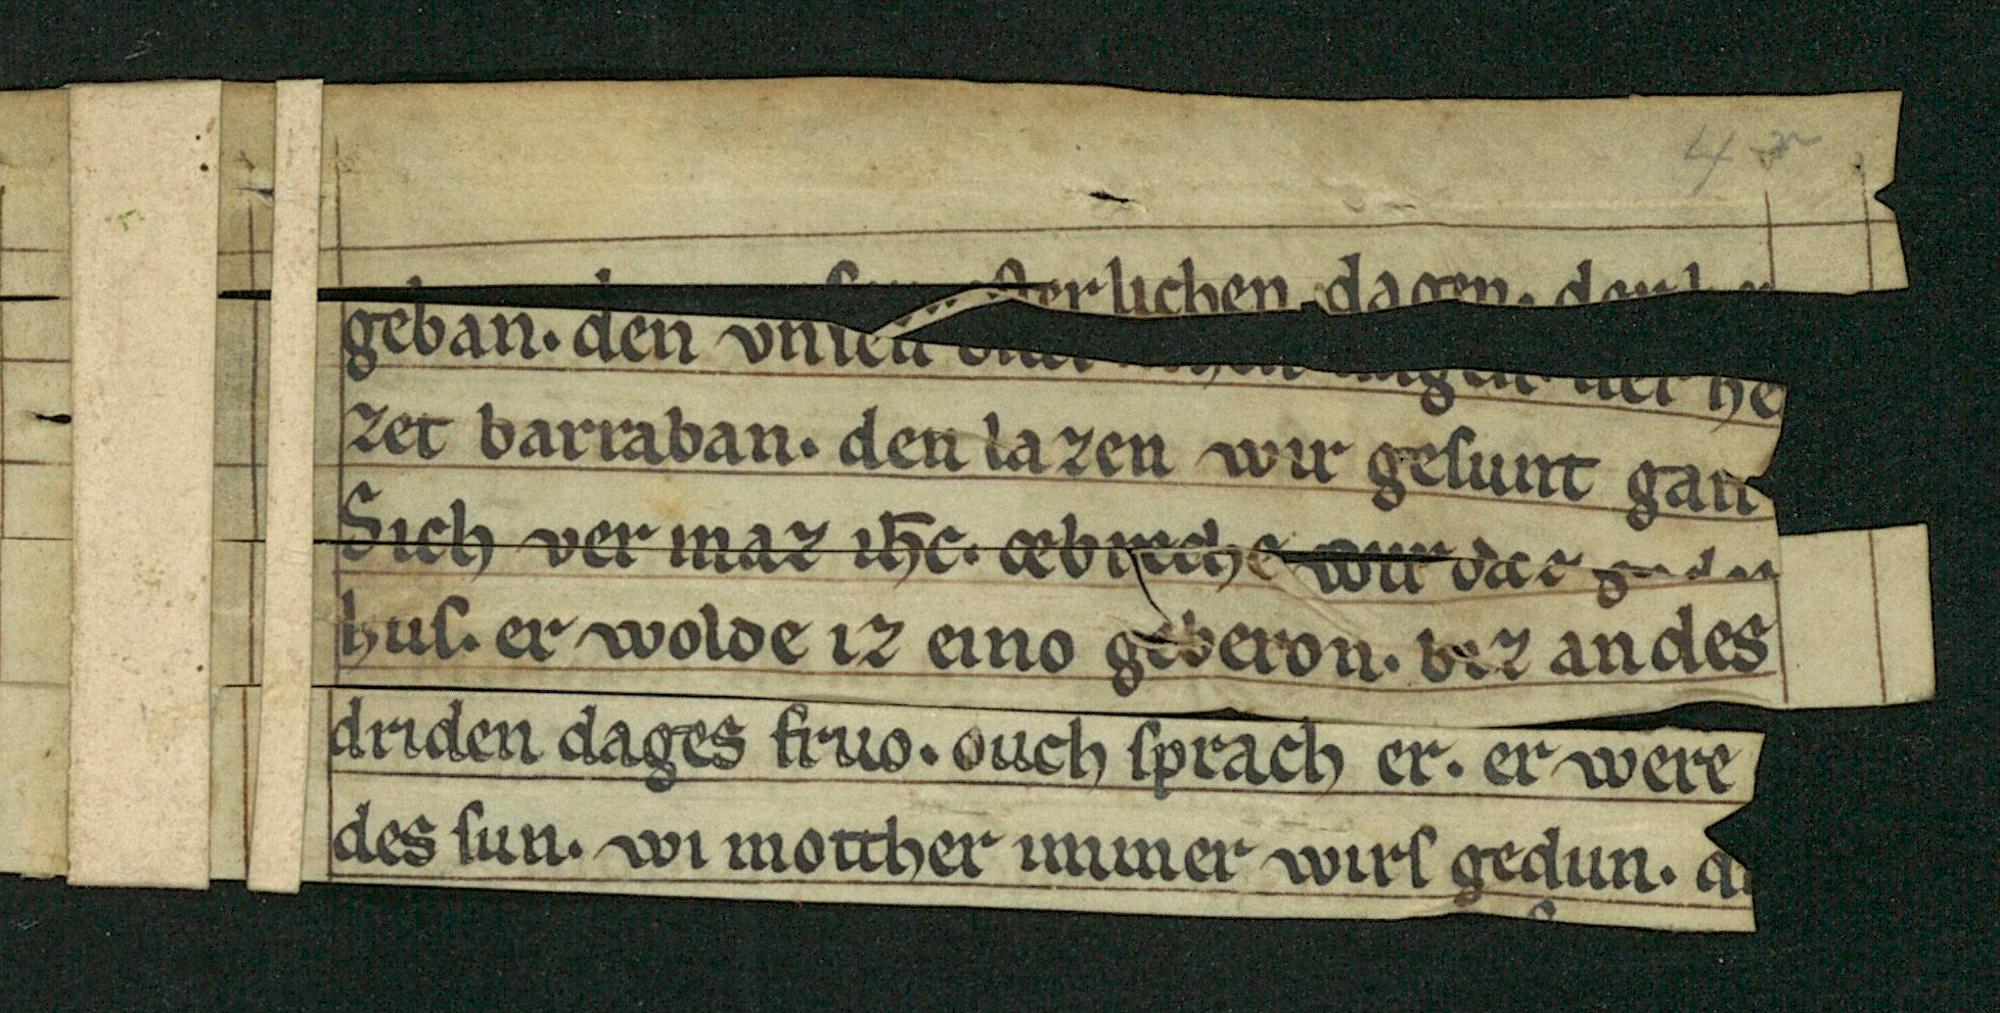 4 r
geban. den vnsen osterlichen dagen. der he
zet barraban. den lazen wir gesunt gan
Sich ver maz ihc. cebreche wir daz
hus. er wolde iz eino geberon. biz an des
driden dages fruo. ouch sprach er. er were
des sun. wi motther immer wirs gedun.